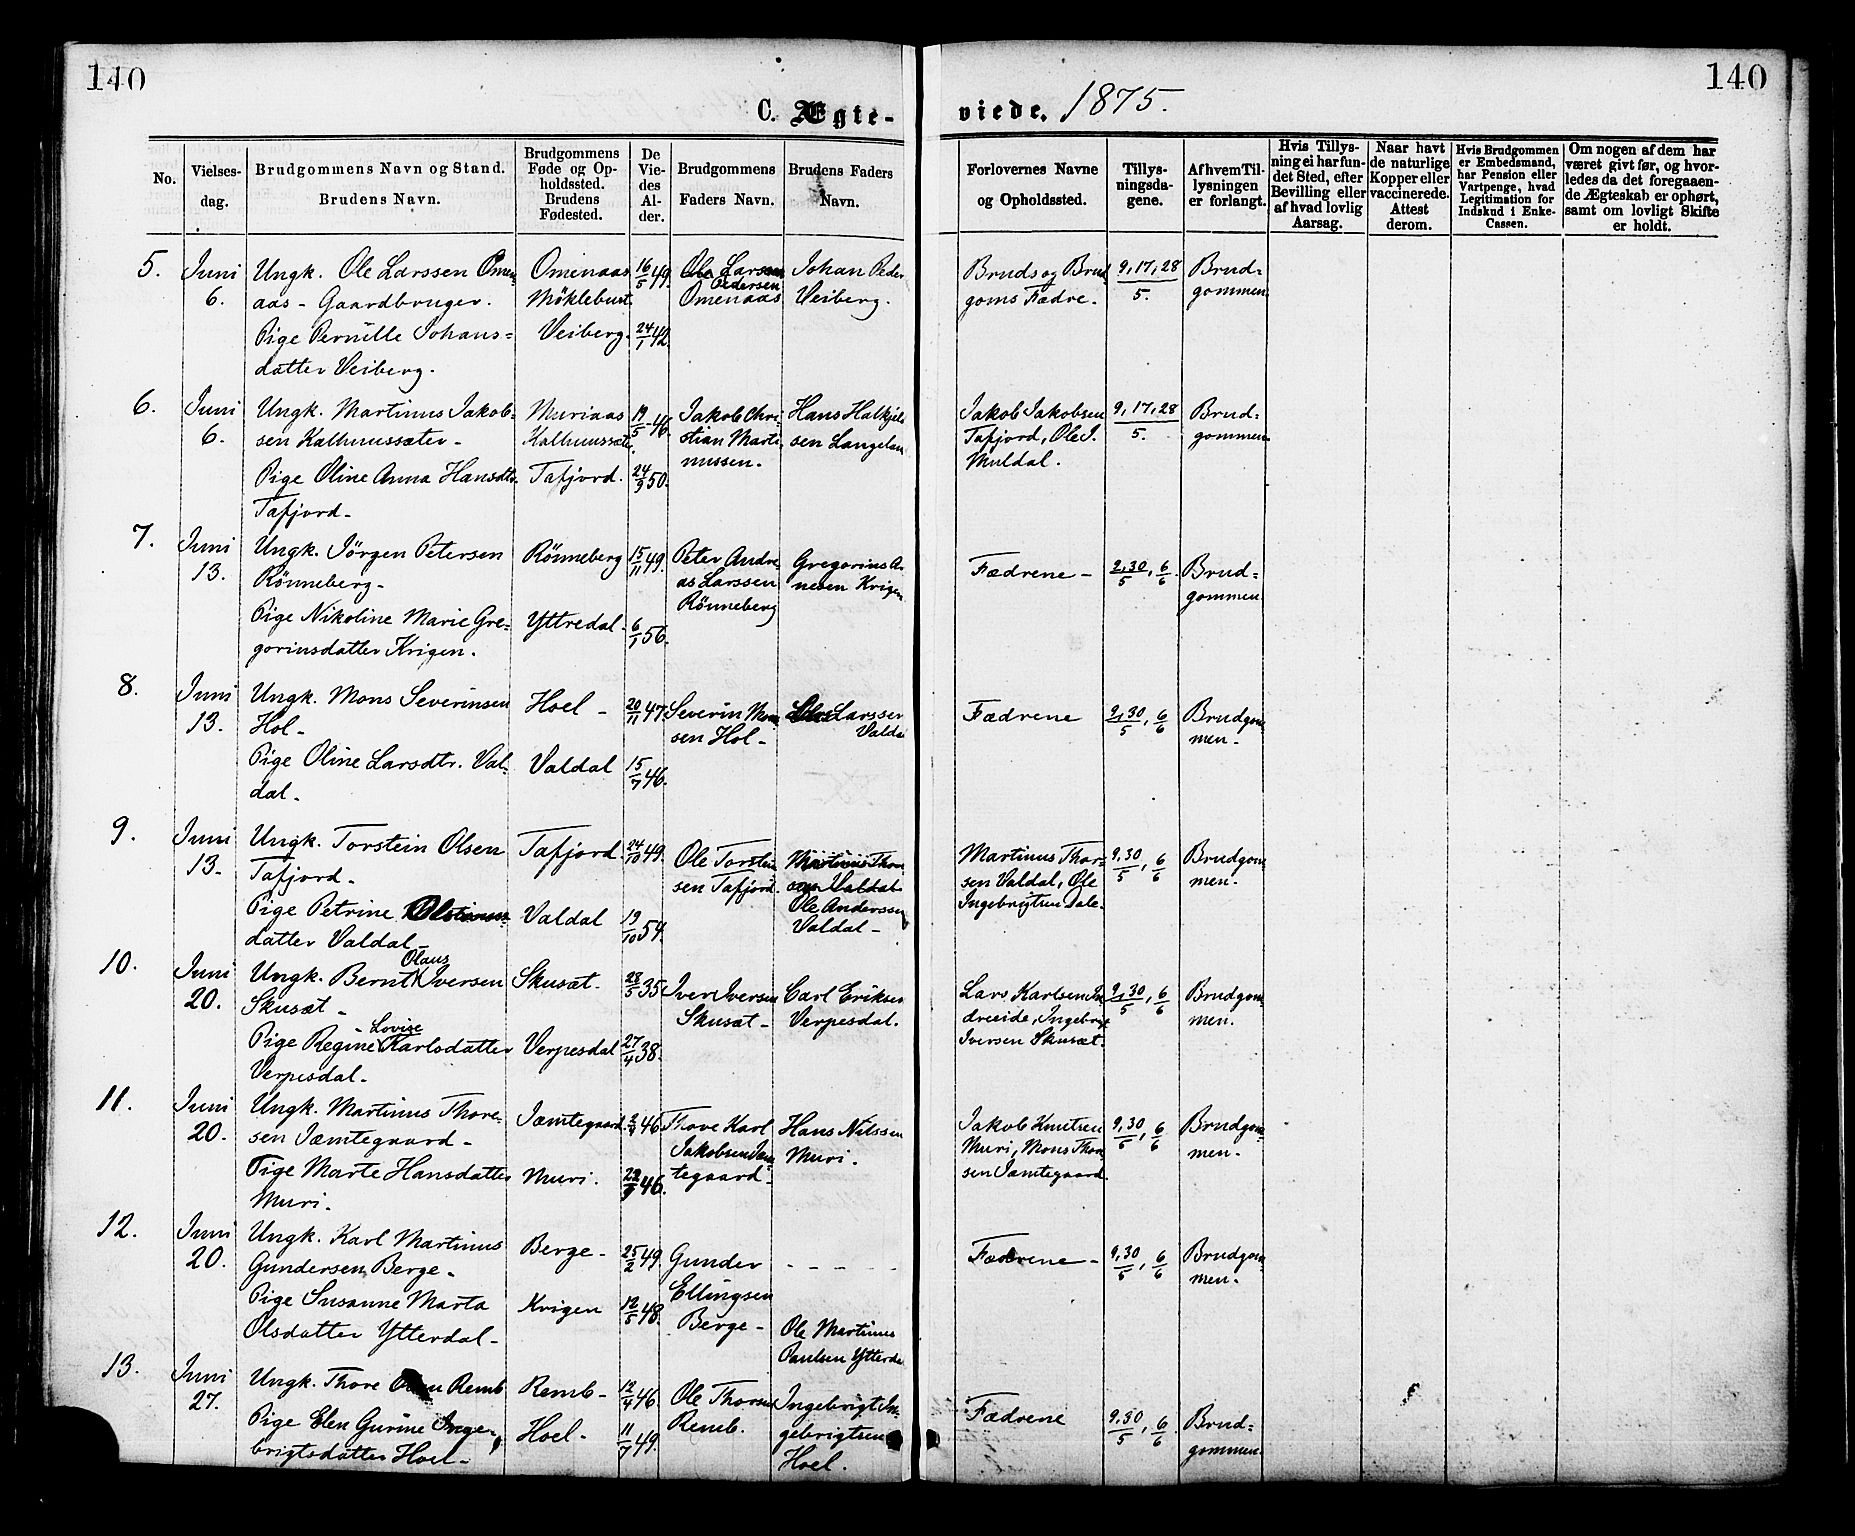 140
140
C. Ægte-
viede, 1875.
No.
Vielses-
dag.
Brudgommens Navn og Stand.
Brudens Navn.
Brudgommens
Føde og Op-
holdssted.
Brudens
Fødested.
De
Vie-
des
Al-
der.
Brudgommens
Faders Navn.
Brudens Faders
Navn.
Forlovernes Navne
og Opholdssted.
Tillys-
ningsda-
gene.
Af hvem Til-
lysningen
er forlangt.
Hvis Tillys-
ning ei har fun-
det Sted, efter
Bevilling eller
af hvad lovlig
Aarsag.
Naar havt
de naturlige
Kopper eller
vaccinerede.
Attest
derom.
Hvis Brudgommen
er Embedsmand,
har Pension eller
Vartpenge, hvad
Legitimation for
Indskud i Enke-
Cassen.
Om nogen af dem har
været givt før, og hvor-
ledes da det foregaaen-
de Ægteskab er ophørt,
samt om lovligt Skifte
er holdt.
5.
Juni
6.
Ungk. Ole Larssen Omen-
aas - Gaardbruger.
Pige Pernille Johans-
datter Veiberg.
Omenaas
Møklebust
Veiberg.
16/5 49.
24/1 42.
Ole Larssen
Pedersen
Omenaas
Johan Peder
Veiberg.
Bruds og Brud-
goms Fædre.
9, 17, 28
5.
Brud-
gommen
6.
Juni
6.
Ungk. Martinus Jakob-
sen Kalhuussæter -
Pige Oline Anna Hansdtr.
Tafjord -
Muriaas
Kalhuussæter
Tafjord.
19/5 46.
24/9 50.
Jakob Chri-
stian Marti-
nussen.
Hans Halkjels
sen Langeland
Jakob Jakobsen
Tafjord, Ole J.
Muldal.
9, 17, 28
5.
Brud-
gommen
7.
Juni
13.
Ungk. Jörgen Petersen
Rönneberg -
Pige Nikoline Marie Gre-
goriusdatter Krigen.
Rönneberg
Yttredal -
15/11 49.
6/1 56.
Peter Andre-
as Larssen
Rönneberg
Gregorius Ar
nesen Krigen
Fædrene -
9, 30/5, 6/6
Brud-
gommen
8.
Juni
13.
Ungk. Mons Severinsen
Hol -
Pige Oline Larsdtr. Val-
dal -
Hoel -
Valdal
20/11 47.
15/7 46.
Severin Mon
sen Hol -
Larssen
Valda
Fædrene
9, 30/5, 6/6
Brudgom
men -
9.
Juni
13.
Ungk. Torstein Olsen
Tafjord -
Pige Petrine
datter Valdal -
Tafjord.
Valdal
24/10 49.
19/10 54.
Ole Torstein
sen Tafjord.
Martinus Thor
sen Valdal
Ole Anderssen
Valdal -
Martinus Thor-
sen Valdal, Ole
Ingebrigtsen Dale -
9, 30/5, 6/6
Brudgom
men -
10.
Juni
20.
Olaus
Ungk. Bernt Iversen
Skusæt -
Lovise
Pige Regine Karlsdatter
Verpesdal -
Skusæt.
Verpesdal
28/5 35
27/4 38.
Iver Iversen
Skusæt -
Carl Eriksen
Verpesdal.
Lars Karlsen In
dreeide, Ingebrigt
Iversen Skusæt.
9, 30/5, 6/6
Brudgom
men.
11.
Juni
20.
Ungk. Martinus Thore-
sen Jæmtegaard -
Pige Marte Hansdatter
Muri.
Jæmtegaard.
Muri.
46
46.
Thore Karl
Jakobsen Jæm
tegaard -
Hans Nilssen
Muri.
Jakob Knutsen
Muri, Mons Thor
sen Jæmtegaard.
9, 30/5, 6/6
Brudgom
men -
12.
Juni
20.
Ungk. Karl Martinus
Gundersen Berge -
Pige Susanne Marta
Olsdatter Ytterdal -
Berge -
Krigen
25/2 49.
12/5 48.
Gunder
Ellingsen
Berge -
- - - -
Ole Martinus
Paulsen Ytterda
Fædrene -
9, 30/5, 6/6
Brudgom
men -
13.
Juni
27.
Ungk. Thore Remb
Pige Elen Gurine Inge-
brigtsdatter Hoel -
Remb -
Hoel -
12/4 46.
11/7 49.
Ole Thorsen
Remb.
Ingebrigt In-
gebrigtsen
Hoel.
Fædrene
9, 30/5, 6/6
Brud-
gommen